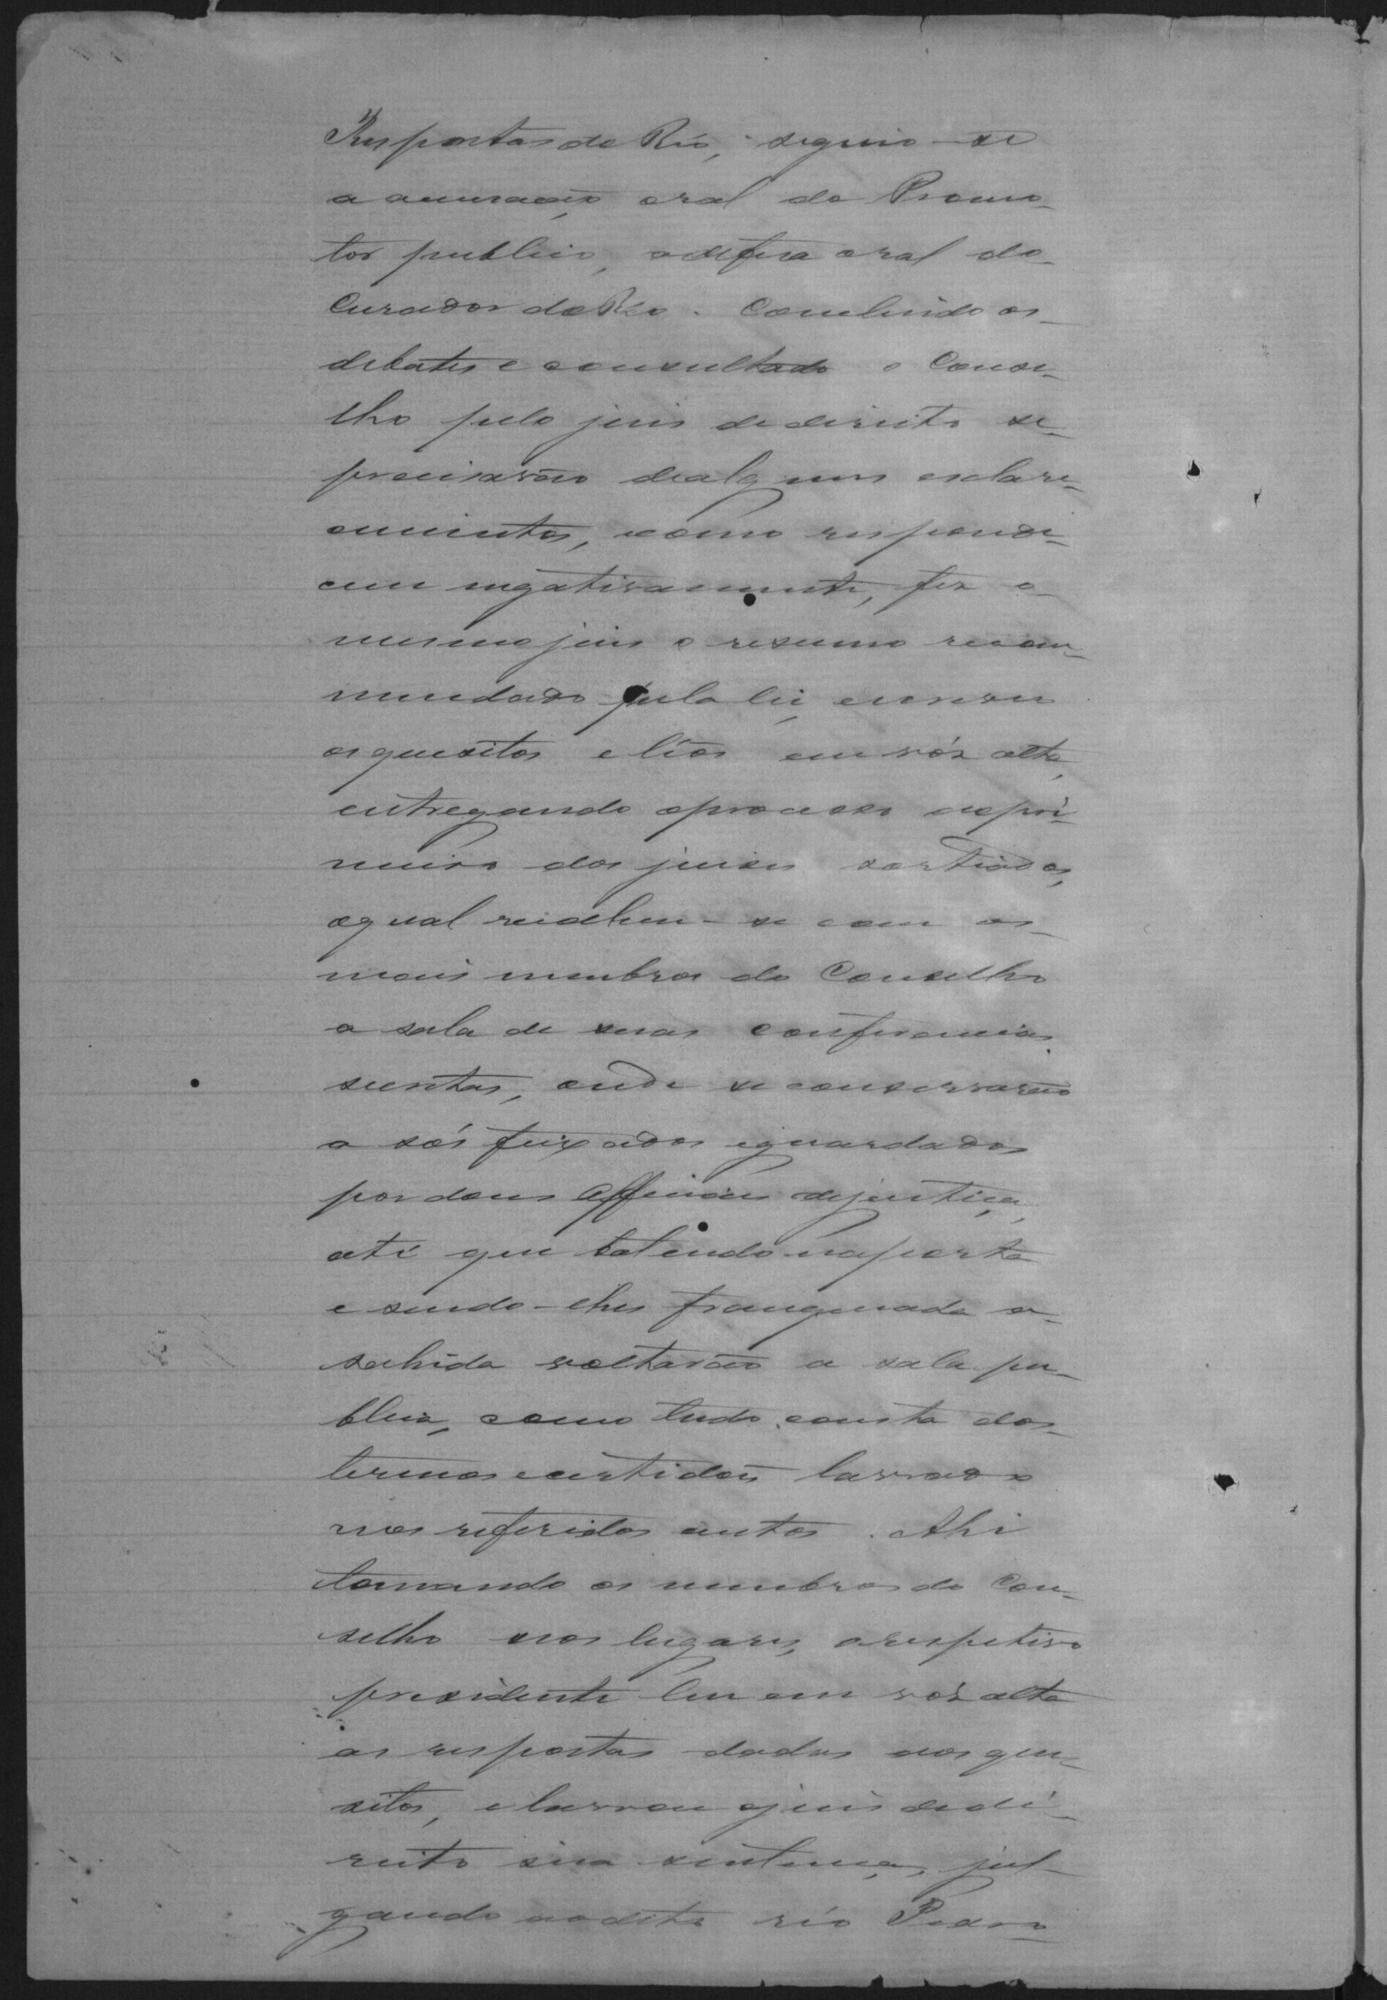 Respostas do Réo, seguio-se
a accusação oral do Promo-
tor publico, a defesa oral do
Curador do Réo. Concluido os
debates e consultado o Conse-
lho pelo juis de direito se
precisavão de alguns esclare-
cimentos, como responde-
cem negativamente, fez o
mesmo juis o resumo recom-
mendado pela lei, escreveu
os quesitos e lêos em vóz alta,
entregando o processo ao pri-
meiro dos juises sorteados,
o qual recolheu-se com os
mais membros do Conselho
a sala de suas conferencias
secretas, onde se conservarão
a sós feixados e guardados
por dous Officiaes de justiça,
até que batendo na porta
e sendo-lhes franqueada a
sahida voltarão a sala pu-
blica, como tudo consta dos
termos e certidões lavrado
nos referidos autos. Ahi
tomando os membros do Con-
selho seos lugares, o respetivo
presidente leu em vóz alta
as respostas dadas aos que-
sitos, e lavrou o juis de di-
reito sua sentença, jul-
gando ao dito réo Pedro